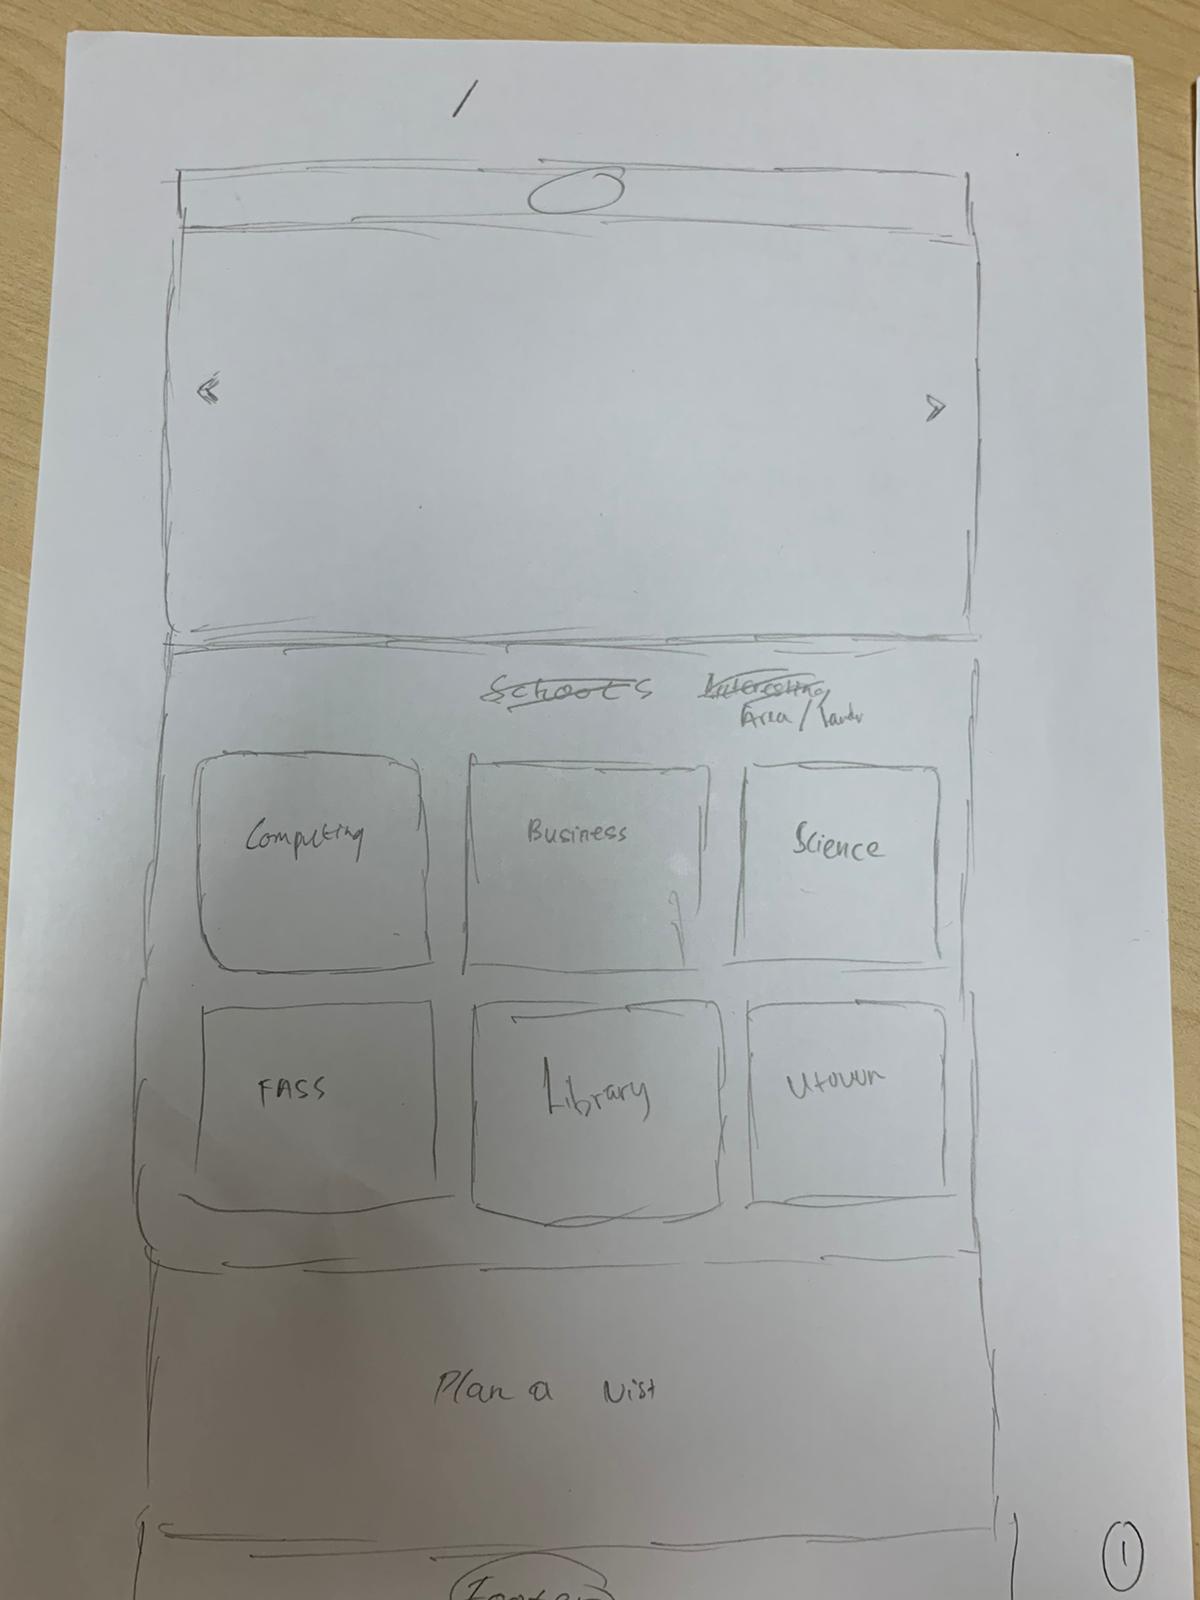 /
<
>
Schools
Interesting
Area /
Computing
Business
Science
FASS
Library
Utown
Plan a Vist
Footer
1